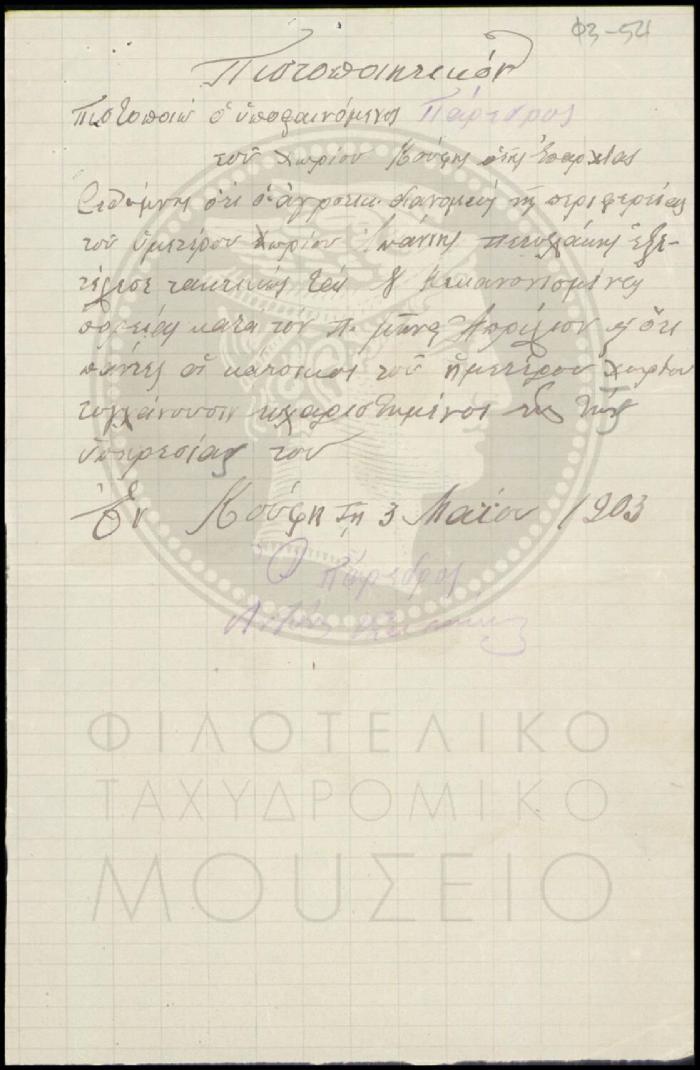 03-54
Πιστοποιητικόν
Πιστοποιώ ὁ ὑποφαινόμενος Πάρεδρος
τοῦ χωρίου Κούφης τῆς ἐπαρχίας
Ρεθύμνης ὅτι ὁ ἀγροτικ. διανομεὺς τῆς περιφερείας
τοῦ ἡμετέρου χωρίου ἐξε-
τέλεσε τακτικῶς τὰς 8 κεκανονισμένας
πορείας κατὰ τον π. μῆνα Ἀπρίλιον κ ὅτι
πάντες οἱ κάτοικοι τοῦ ἡμετέρου χωρίου
τυγχάνουσιν εὐχαριστημένοι ἐκ τῆς
ὑπηρεσίας του
Ἐν Κούφη τῇ 3 Μαΐου 1903
Ὁ Πάρεδρος
ΦΙΛΟΤΕΛΙΚΟ
ΤΑΧΥΔΡΟΜΙΚΟ
ΜΟΥΣΕΙΟ